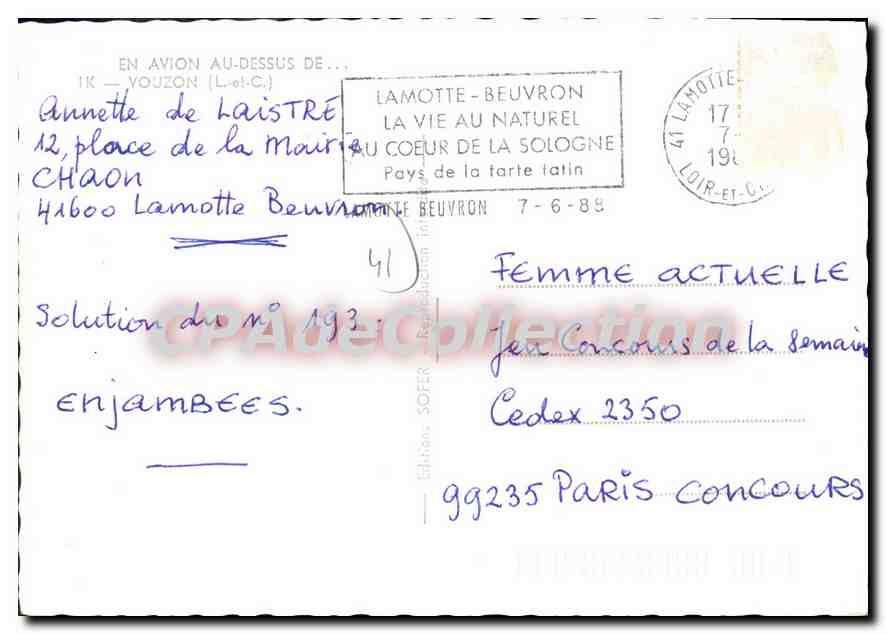 EN AVION AU-DESSUS DE...
1K — VOUZON (L.-et-C.)
Annette de LAISTRE
12, place de la Mairie
CHAON
41600 Lamotte Beuvron.
41
Solution du n° 193 :
ENJAMBEES.
LAMOTTE-BEUVRON
LA VIE AU NATUREL
AU COEUR DE LA SOLOGNE
Pays de la tarte tatin
LAMOTTE BEUVRON 7-6-88
41 LAMOTTE-
17
7-
198
LOIR-ET-C
Editions SOFER - Reproduction
FEMME ACTUELLE
Jeu Concours de la Semaine
Cedex 2350
99235 PARIS CONCOURS
CPAdeCollection